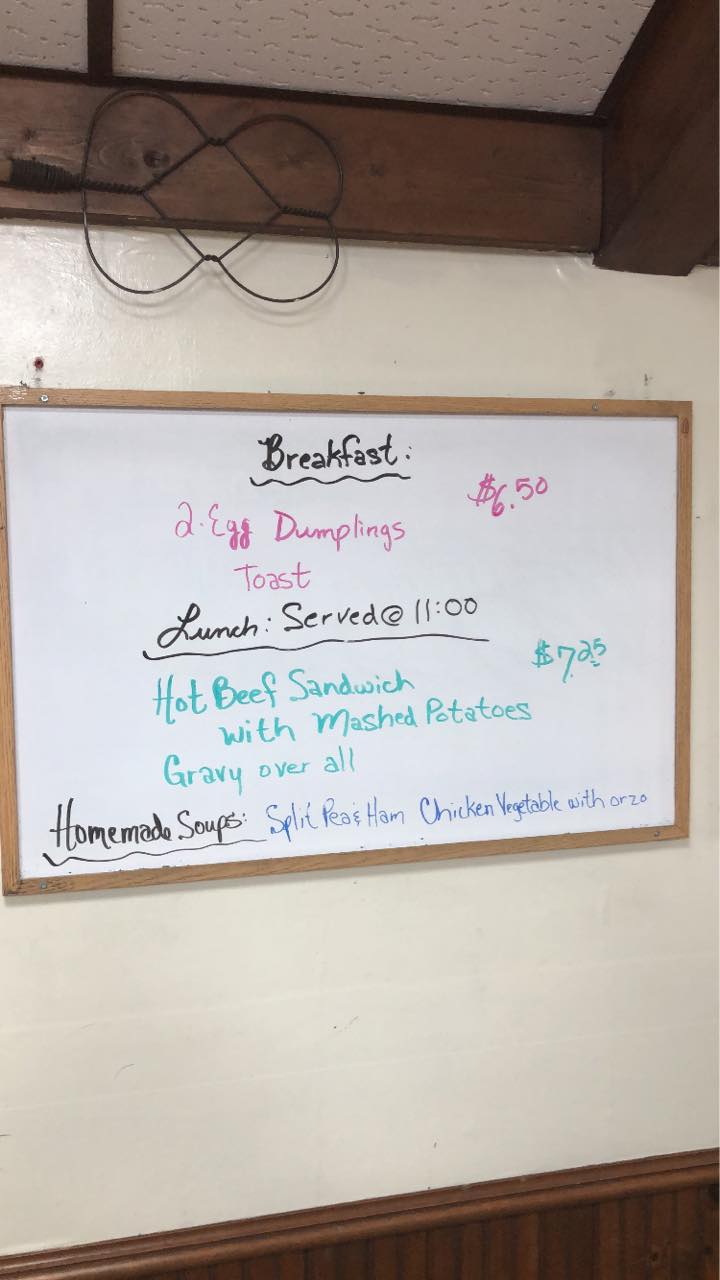 Breakfast:
$6.50
2 Egg Dumplings
Toast
Lunch: Served @ 11:00
$7.25
Hot Beef Sandwich
with Mashed Potatoes
Gravy over all
Homemade Soups: Split Pea & Ham Chicken Vegetable with orzo